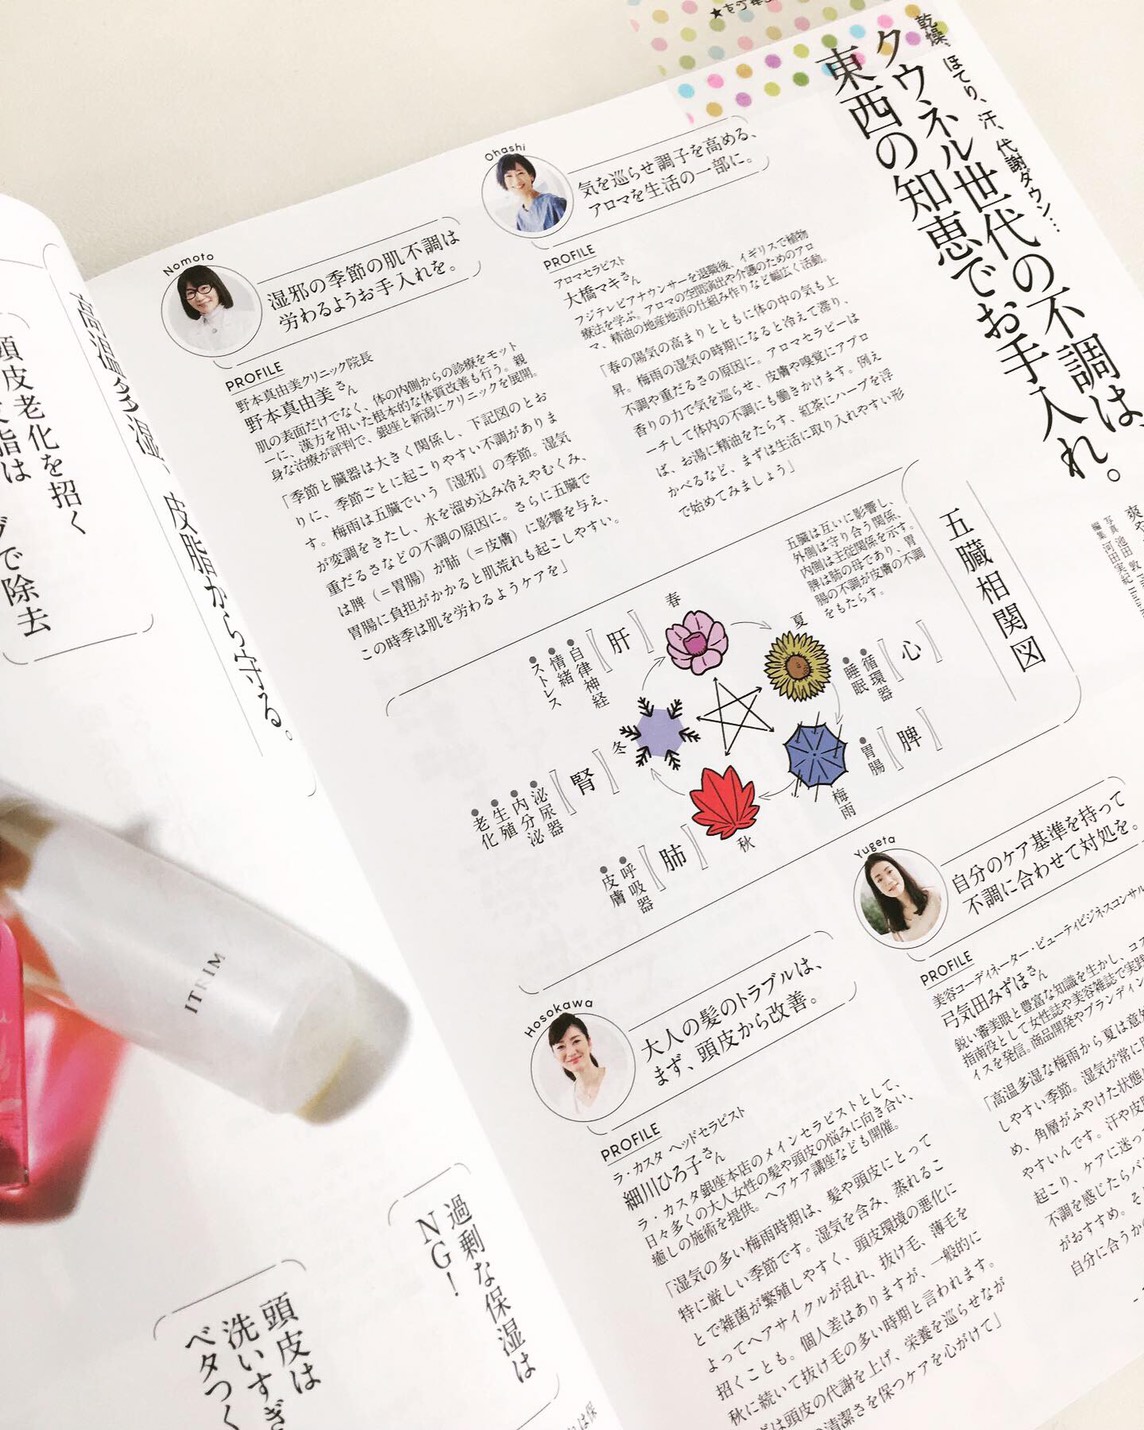 乾燥、ほてり、汗、代謝ダウン…
クウネル世代の不調は、
東西の知恵でお手入れ。
Ohashi
気を巡らせ調子を高める、
アロマを生活の一部に。
PROFILE
アロマセラピスト
大橋マキさん
フジテレビアナウンサーを退職後、イギリスで植物
療法を学ぶ。アロマの空間演出や介護のためのアロ
マ、精油の地産地消の仕組み作りなど幅広く活動。
「春の陽気の高まりとともに体の中の気も上
昇。梅雨の湿気の時期になると冷えて滞り、
不調や重だるさの原因に。アロマセラピーは
香りの力で気を巡らせ、皮膚や嗅覚にアプロ
ーチして体内の不調にも働きかけます。例え
ば、お湯に精油をたらす、紅茶にハーブを浮
かべるなど、まずは生活に取り入れやすい形
で始めてみましょう」
Nomoto
湿邪の季節の肌不調は
労わるようお手入れを。
PROFILE
野本真由美クリニック院長
野本真由美さん
肌の表面だけでなく、体の内側からの診療をモット
ーに、漢方を用いた根本的な体質改善も行う。親
身な治療が評判で、銀座と新潟にクリニックを展開。
「季節と臓器は大きく関係し、下記図のとお
りに、季節ごとに起こりやすい不調がありま
す。梅雨は五臓でいう『湿邪』の季節。湿気
が変調をきたし、水を溜め込み冷えやむくみ、
重だるさなどの不調の原因に。さらに五臓で
は脾（＝胃腸）が肺（＝皮膚）に影響を与え、
胃腸に負担がかかると肌荒れも起こしやすい。
この時季は肌を労わるようケアを」
五臓相関図
五臓は互いに影響し、
外側は守り合う関係、
内側は主従関係を示す。
脾は肺の母であり、胃
腸の不調が皮膚の不調
をもたらす。
春
肝
●自律神経
●情緒
●ストレス
夏
心
●循環器
●睡眠
梅雨
脾
●胃腸
秋
肺
●呼吸器
●皮膚
冬
腎
●泌尿器
●内分泌
●生殖
●老化
Yugeta
自分のケア基準を持って
不調に合わせて対処を。
PROFILE
美容コーディネーター・ビューティビジネスコンサル
弓気田みずほさん
鋭い審美眼と豊富な知識を生かし、コス
指南役として女性誌や美容雑誌で実践
イスを発信。商品開発やブランディン
「高温多湿な梅雨から夏は意外
しやすい季節。湿気が常に
め、角層がふやけた状態
やすいんです。汗や皮
起こり、ケアに迷っ
不調を感じたらバ
がおすすめ。そ
自分に合うか
Hosokawa
大人の髪のトラブルは、
まず、頭皮から改善。
PROFILE
ラ・カスタ ヘッドセラピスト
細川ひろ子さん
ラ・カスタ銀座本店のメインセラピストとして、
日々多くの大人女性の髪や頭皮の悩みに向き合い、
癒しの施術を提供。ヘアケア講座なども開催。
「湿気の多い梅雨時期は、髪や頭皮にとって
特に厳しい季節です。湿気を含み、蒸れるこ
とで雑菌が繁殖しやすく、頭皮環境の悪化に
よってヘアサイクルが乱れ、抜け毛、薄毛を
招くことも。個人差はありますが、一般的に
秋に続いて抜け毛の多い時期と言われます。
ずは頭皮の代謝を上げ、栄養を巡らせなが
清潔さを保つケアを心がけて」
高温多湿、皮脂から守る。
頭皮老化を招く
で除去
ITRIM
過剰な保湿は
NG！
頭皮は
洗いすぎ
ベタつく